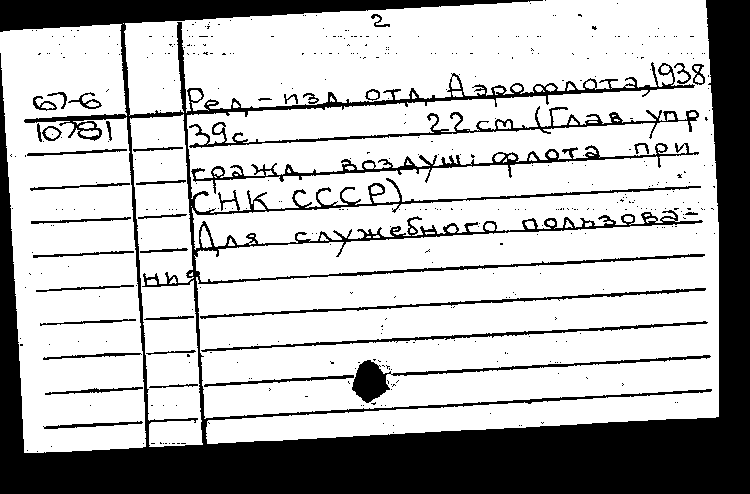 2
67-6
Ред.-изд. отд. Аэрофлота, 1938
10781
39с. 22 cm. (Глав. упр.
гражд. воздуш. флота при
СНК СССР).
Для служебного пользова-
ния.